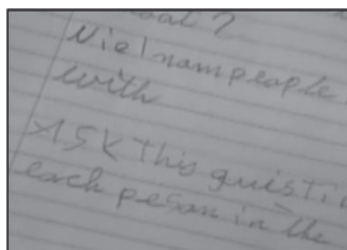 Vietnam people
with
ASK This questi
each peson in the